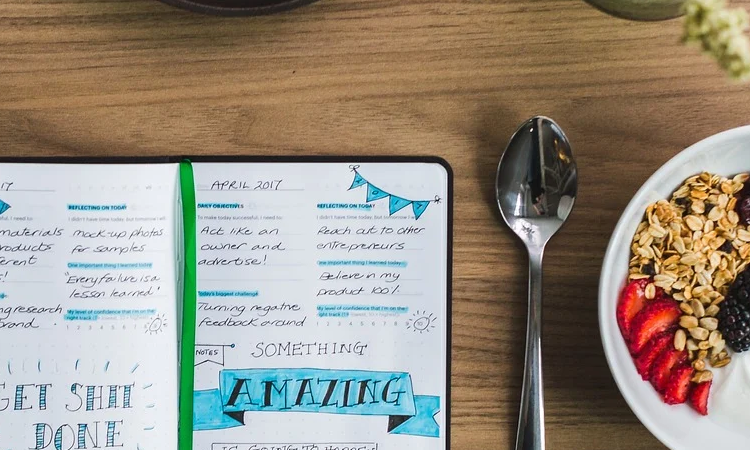 17
REFLECTING ON TODAY
I didn't have time today, but tomorrow I will
materials
mock-up photos
products
for samples
erent
One important thing I learned today
!
"Every failure is a
lesson learned"
ng research
My level of confidence that I'm on the
brand.
right track
1 2 3 4 5 6 7 8 9 10
GET SHIT
DONE
APRIL 2017
DAILY OBJECTIVES
To make today successful, I need to:
Act like an
owner and
advertise!
Today's biggest challenge
Turning negative
feedback around
REFLECTING ON TODAY
I didn't have time today, but tomorrow I will
Reach out to other
entrepreneurs
One important thing I learned today
Believe in my
product 100%
My level of confidence that I'm on the
right track
1 2 3 4 5 6 7 8 9 10
NOTES
SOMETHING
AMAZING
IS GOING TO HAPPEN!